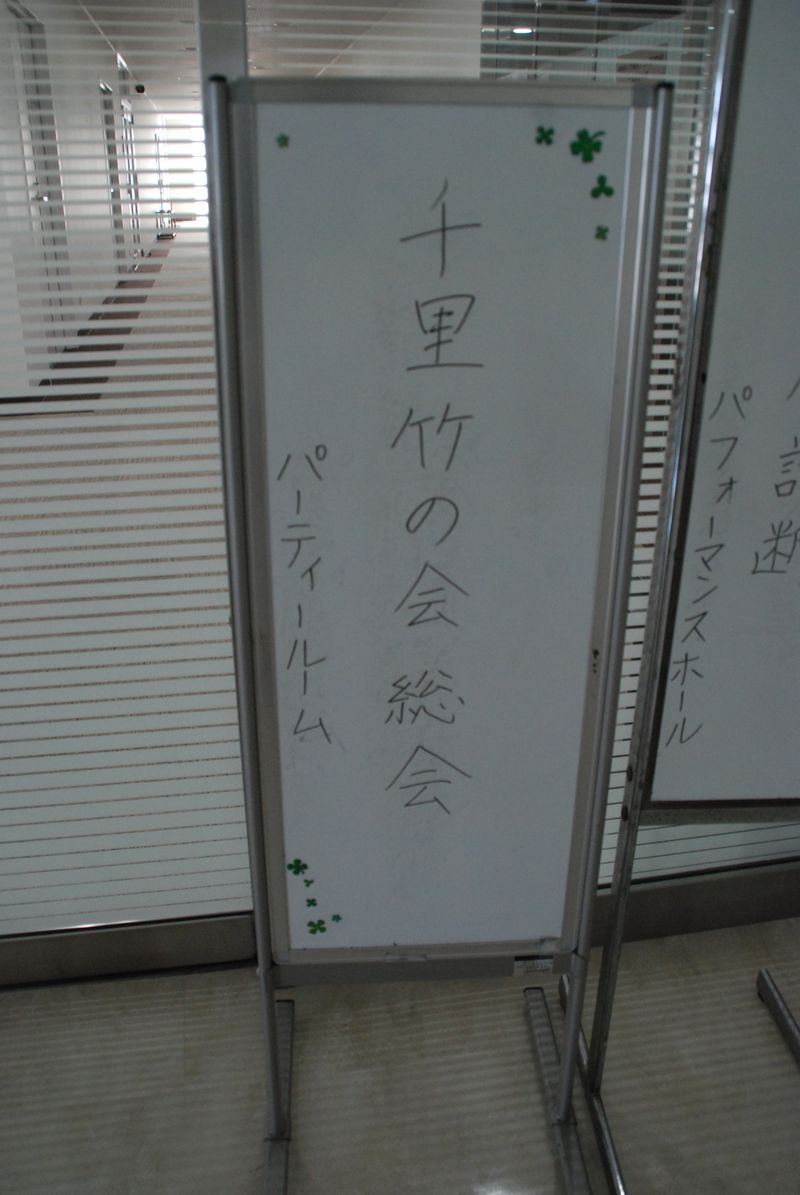 千里竹の会 総会
パーティールーム
診断
パフォーマンスホール